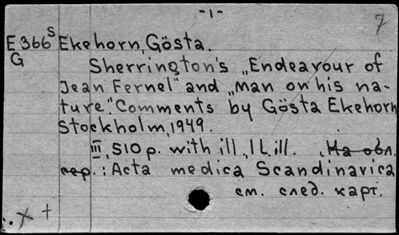 -1-
7
E 366 S Ekehorn, Gösta.
G
Sherrington's „Endeavour of
Jean Fernel" and „Man on his na-
ture." Comments by Gösta Ekehorn
Stockholm, 1949.
III, 510 p. with ill., 1 L ill. На обл.
пер.: Acta medica Scandinavica
см. след. карт.